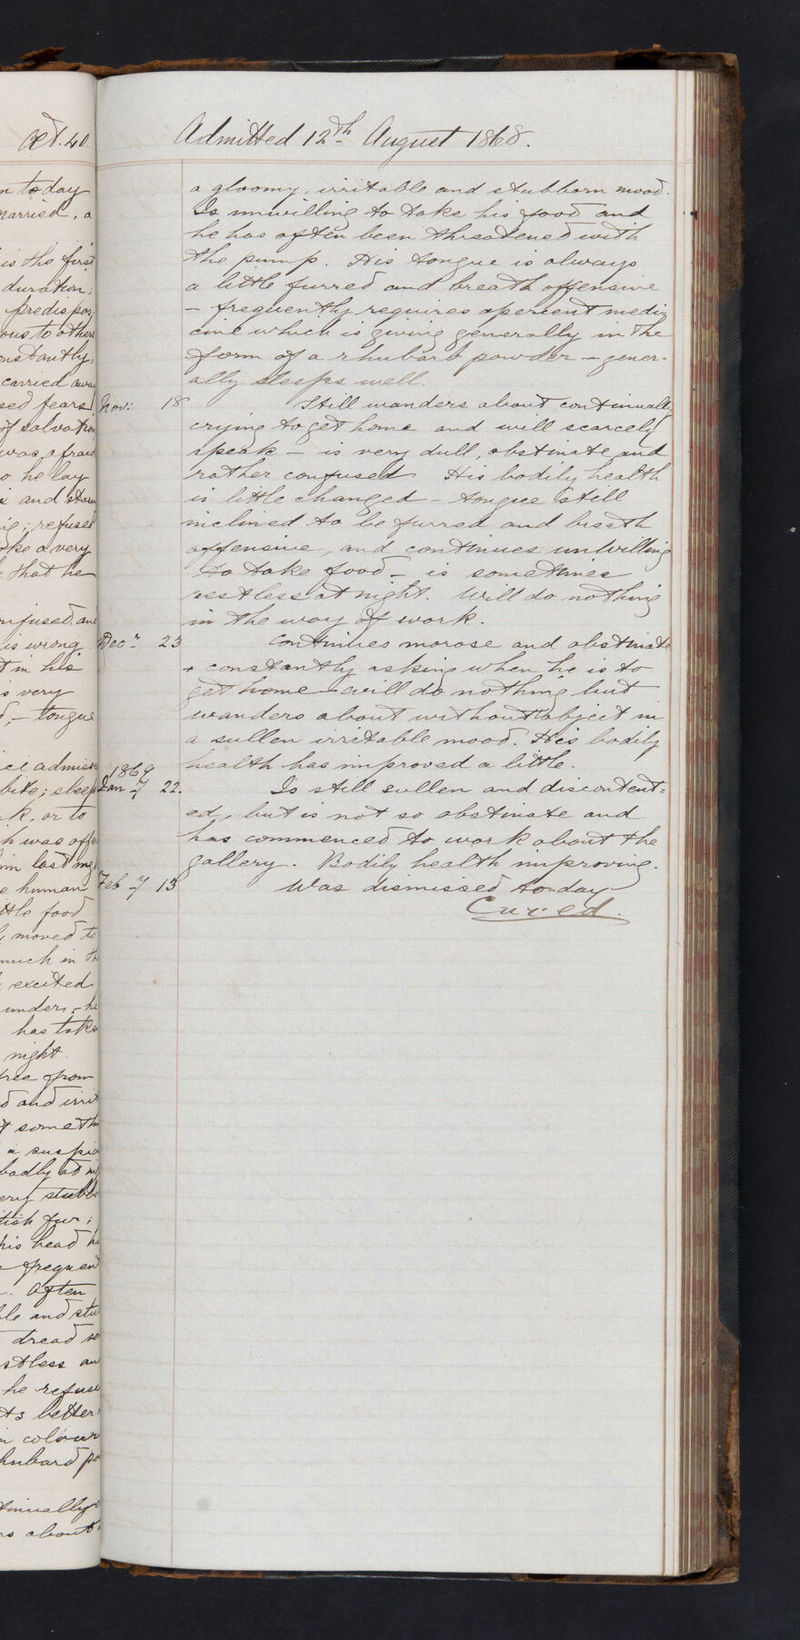 aet. 40
n today
married, a
is the first
duration;
predispos
ous to others
nstantly,
carried awa
sed fears
of salvation
was afraid
o he lay
and stare
refused
ke a very
that he
nfused, and
is wrong
t in his
s very
d, – tongue
ice admin
bite; sleep
k, or to
h was offe
im last nig
e human
ttle food
moved to
much in th
excited
under, – he
has take
night.
free from
d and irrit
t someth
a suspic
badly at ni
ery stubb
tish fur;
his head h
frequen
Often
ble and stu
dread
stless an
he refuse
ts better
in colour
hubarb po
tinually
rs about
Admitted 12th August 1868.
a gloomy, irritable and stubborn mood.
Is unwilling to take his food and
he has often been threatened with
the pump. His tongue is always
a little furred and breath offensive
– frequently requires aperient medi
cine which is giving generally in the
form of a rhubarb powder – gener-
ally sleeps well.
Nov: 18 Still wanders about continually
crying to get home and will scarcely
speak – is very dull, obstinate and
rather confused His bodily health
is little changed – tongue still
inclined to be furred and breath
offensive, and continues unwilling
to take food – is sometimes
restless at night. Will do nothing
in the way of work.
Decr 23 Continues morose and obstinate
+ constantly asking when he is to
get home – will do nothing but
wanders about without object in
a sullen irritable mood. His bodily
health has improved a little.
1869
Jany 22. Is still sullen and discontent=
ed, but is not so obstinate and
has commenced to work about the
gallery. Bodily health improving.
Feby 13 Was dismissed to-day
Cured.